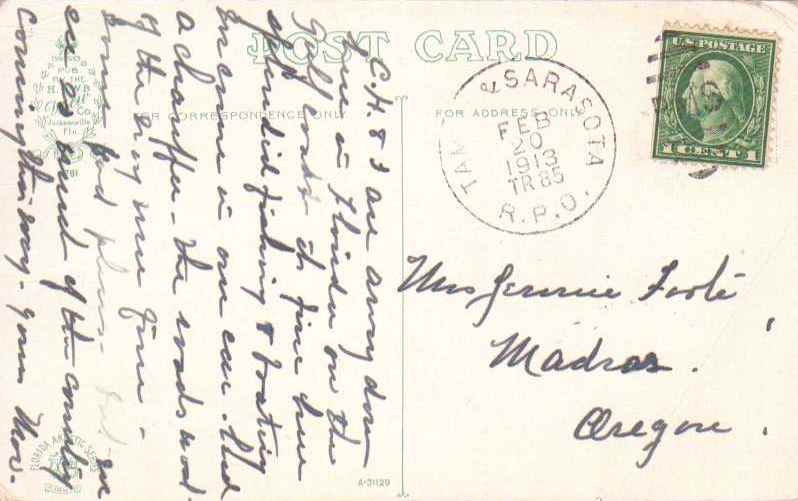 POST CARD
FOR CORRESPONDENCE ONLY
FOR ADDRESS ONLY
PUB
BY THE
H. & W.B
DREW
Co.
Jacksonville
Fla.
C.H. & I are away down
here in Florida on the
Gulf coast its fine here
splendid fishing &
boating
in our car. Had
a chauffer - The roads most
of the way were fine -
some bad places - but in
end of the country
coming this way - yours
TAM & SARASOTA
FEB
20
1913
TR 85
R.P.O.
RMS
U.S. POSTAGE
1 CENT 1
Mrs Jennie Forté
Madras.
Oregon.
FLORIDA ARTISTIC SERIES
A-31129